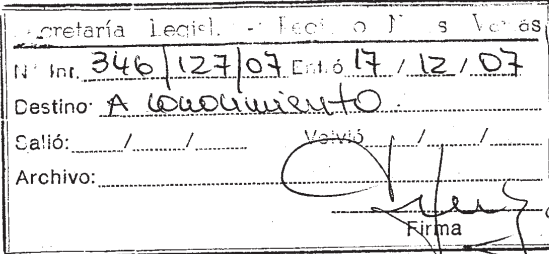 cretaría Legisl. - 
N° Int. 346/127/07 Entró 17 / 12 / 07
Destino: A conocimiento.
Salió: / / Volvió / /
Archivo:
Firma